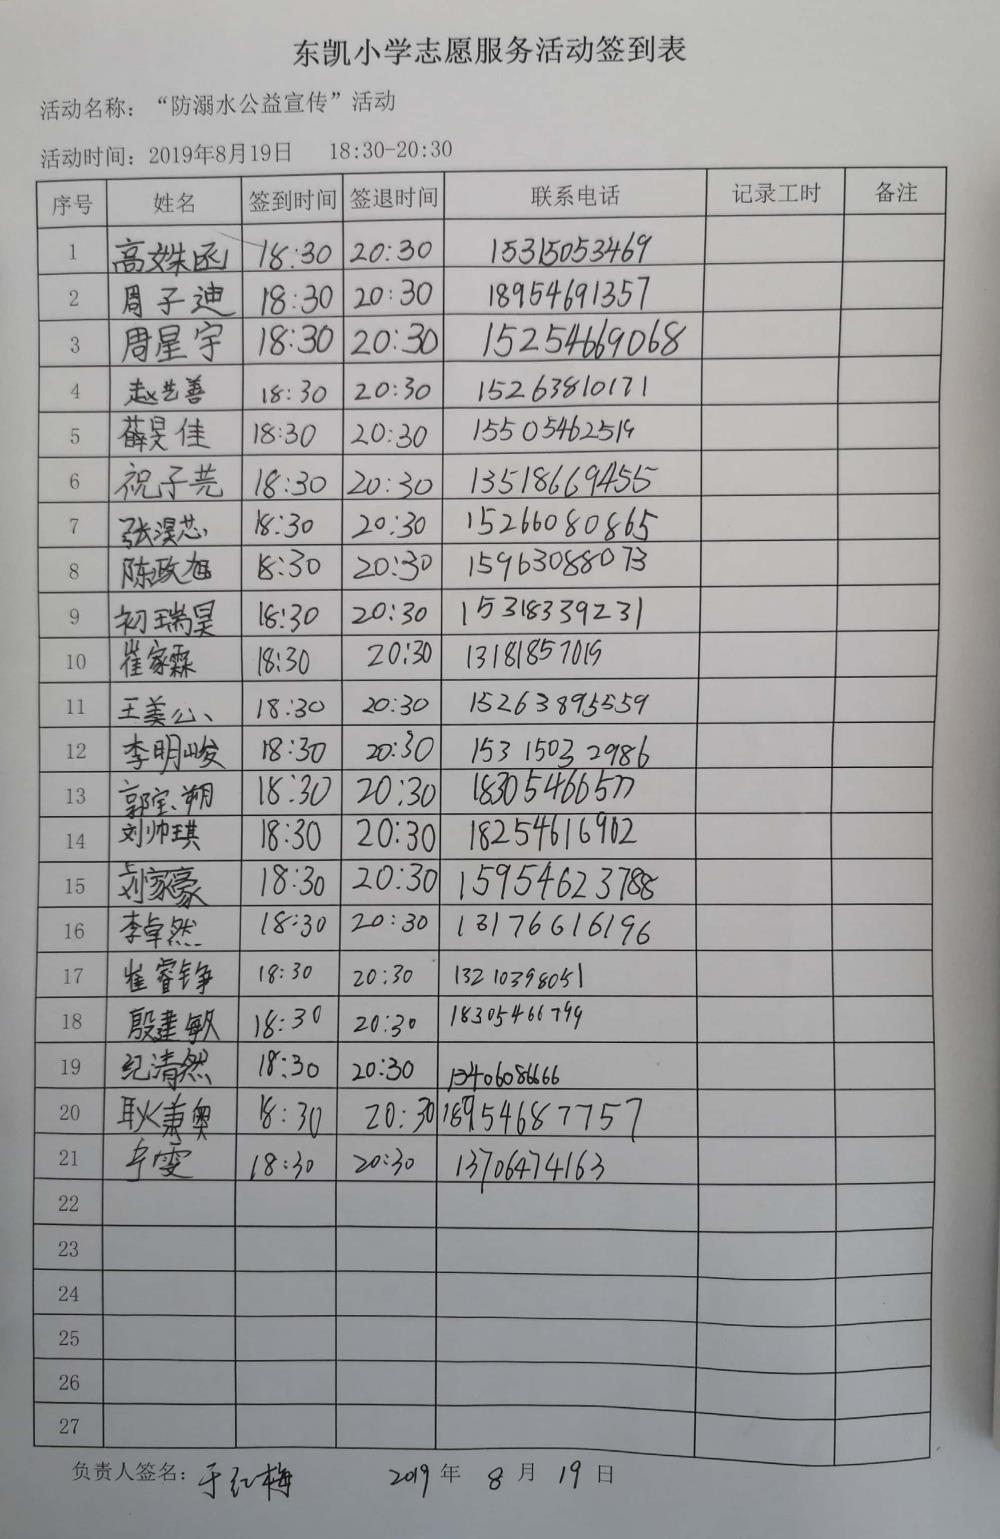 东凯小学志愿服务活动签到表
活动名称：“防溺水公益宣传”活动
活动时间：2019年8月19日 18:30-20:30
序号 姓名 签到时间 签退时间 联系电话 记录工时 备注
1 高姝函 18:30 20:30 15315053469
2 周子迪 18:30 20:30 18954691357
3 周星宇 18:30 20:30 15254669068
4 赵艺善 18:30 20:30 15263810171
5 薛旻佳 18:30 20:30 15505462519
6 祝子芫 18:30 20:30 13518669455
7 张淏芯 18:30 20:30 15266080865
8 陈政旭 18:30 20:30 15963088073
9 初瑞昊 18:30 20:30 15318339231
10 崔家霖 18:30 20:30 13181857019
11 王美公 18:30 20:30 15263895559
12 李明峻 18:30 20:30 15315032986
13 郭宝朔 18:30 20:30 18305466577
14 刘帅琪 18:30 20:30 18254616902
15 刘家豪 18:30 20:30 15954623788
16 李卓然 18:30 20:30 13176616196
17 崔睿铮 18:30 20:30 13210398051
18 殷建敏 18:30 20:30 18305466799
19 纪清然 18:30 20:30 13406086666
20 耿兼奥 18:30 20:30 18954687757
21 雯 18:30 20:30 13706474163
22
23
24
25
26
27
负责人签名：于红梅 2019年8月19日